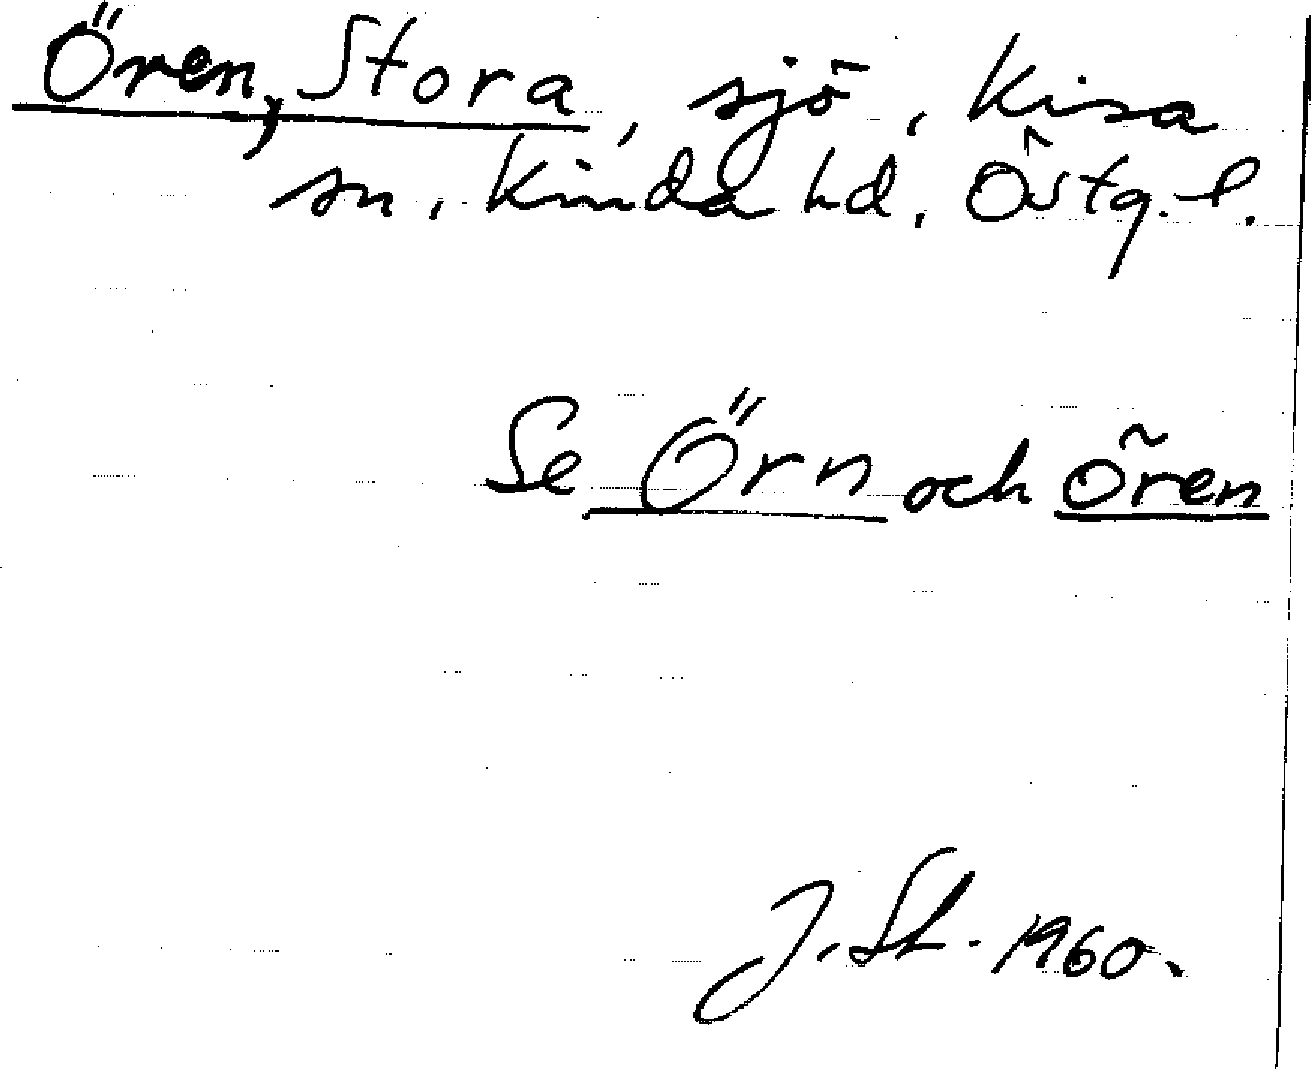 Ören, Stora, sjö, Kisa
sn, Kinda hd, Östg. l.
Se Örn och Ören
J. St. 1960.